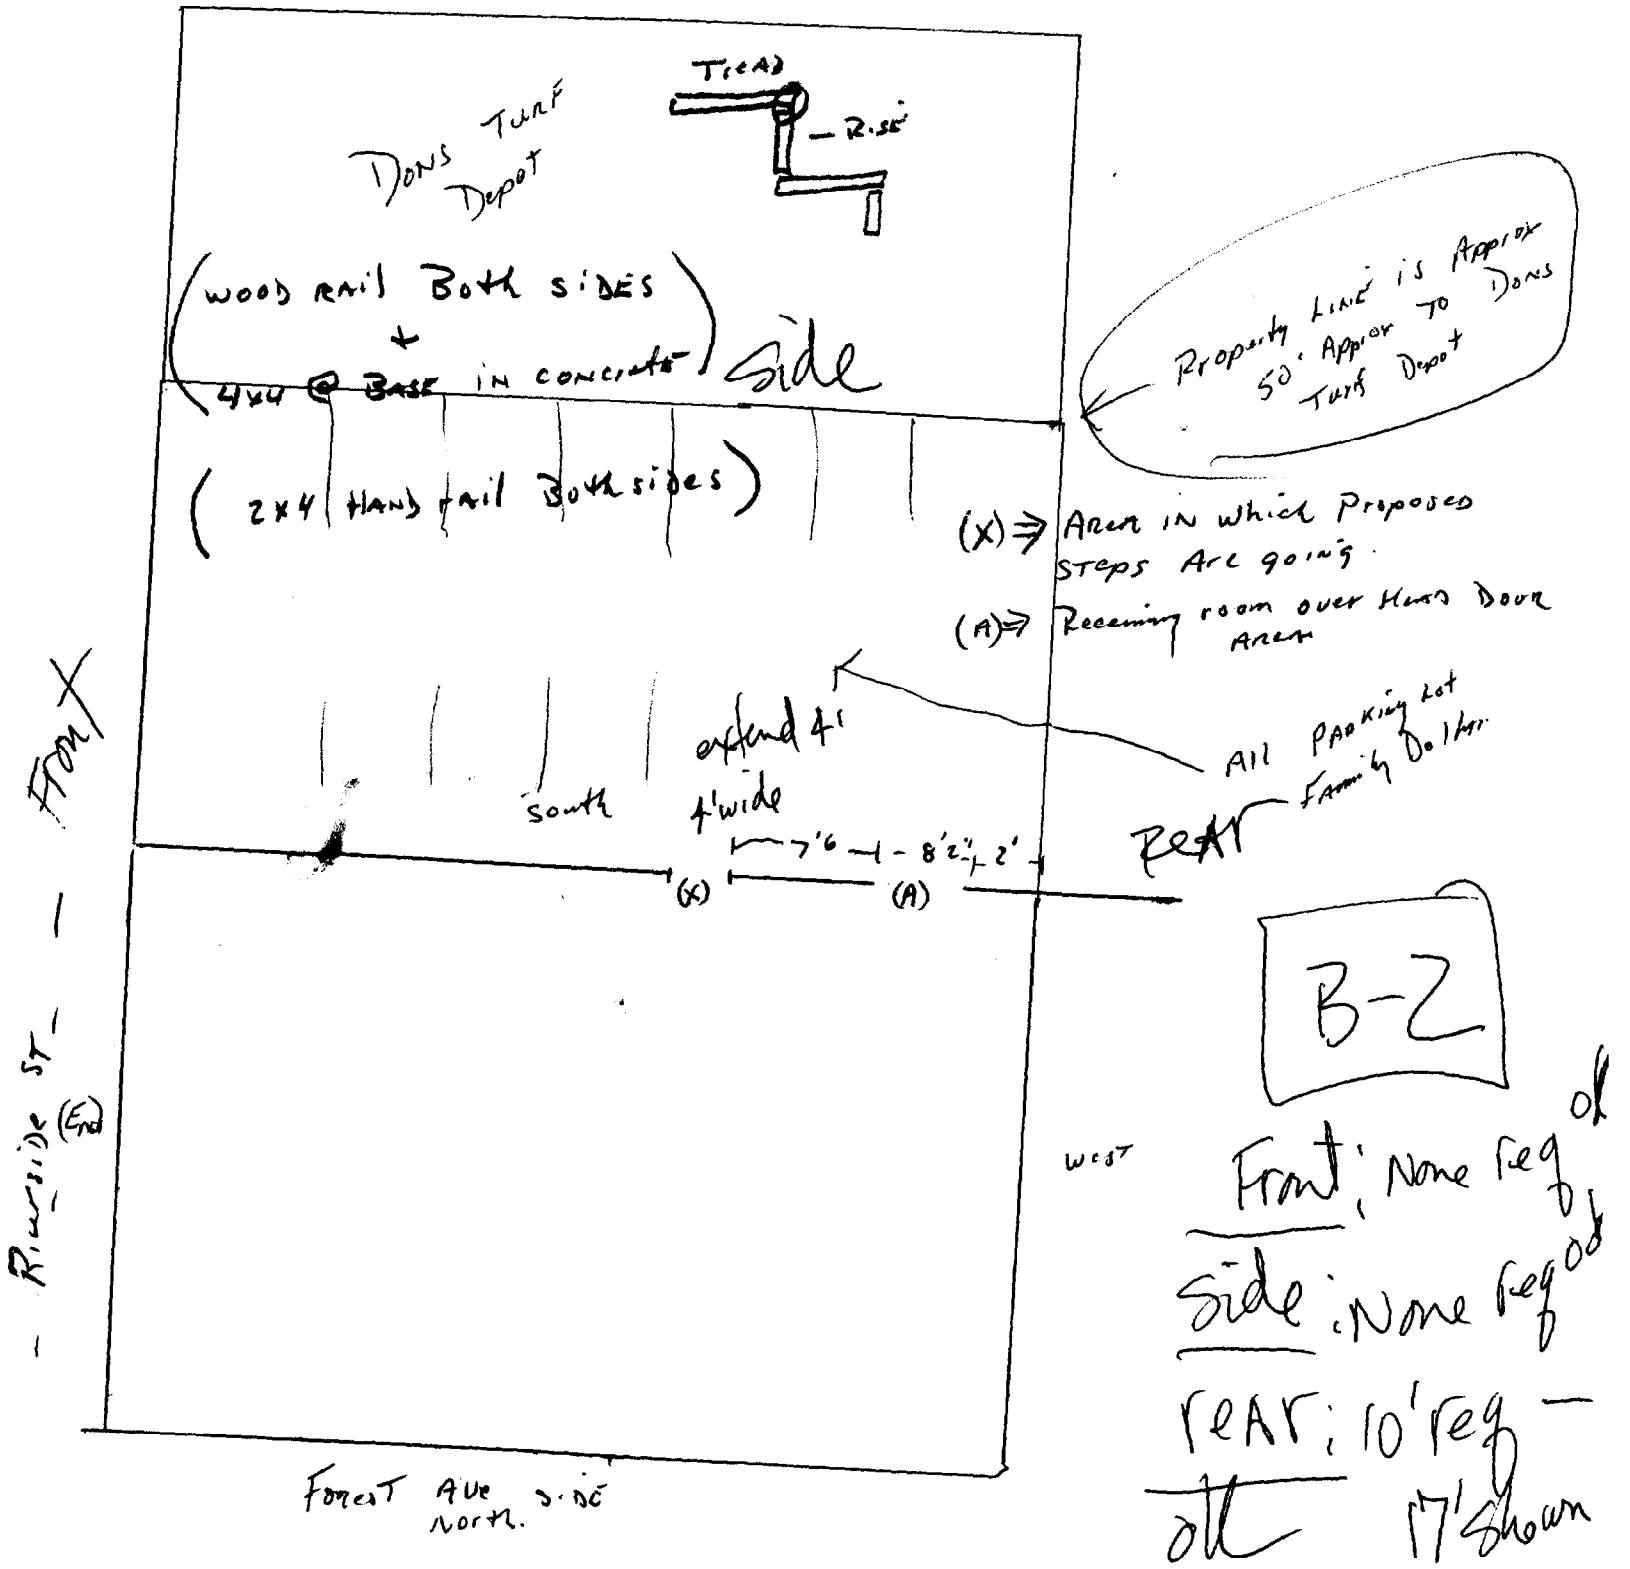 Tread
- Rise
Dons Turf
Depot
(wood rail Both sides
+
4x4 @ Base in concrete)
side
(2x4 Hand rail Both sides)
Property Line is Approx
50' Approx To Dons
Turf Depot
(X) ⇒ Area in which Proposed
steps Are going.
(A) ⇒ Receiving room over Head Door
Area
All Parking Lot
Family Dollar
Rear
extend 4'
4' wide
south
7'6 8'2" 2'
(X) (A)
Front
- Riverside ST - - -
(End)
B-2
west
Front: None req ok
Side: None req ok
rear: 10' req -
ok 17' shown
Forest Ave Side
North.